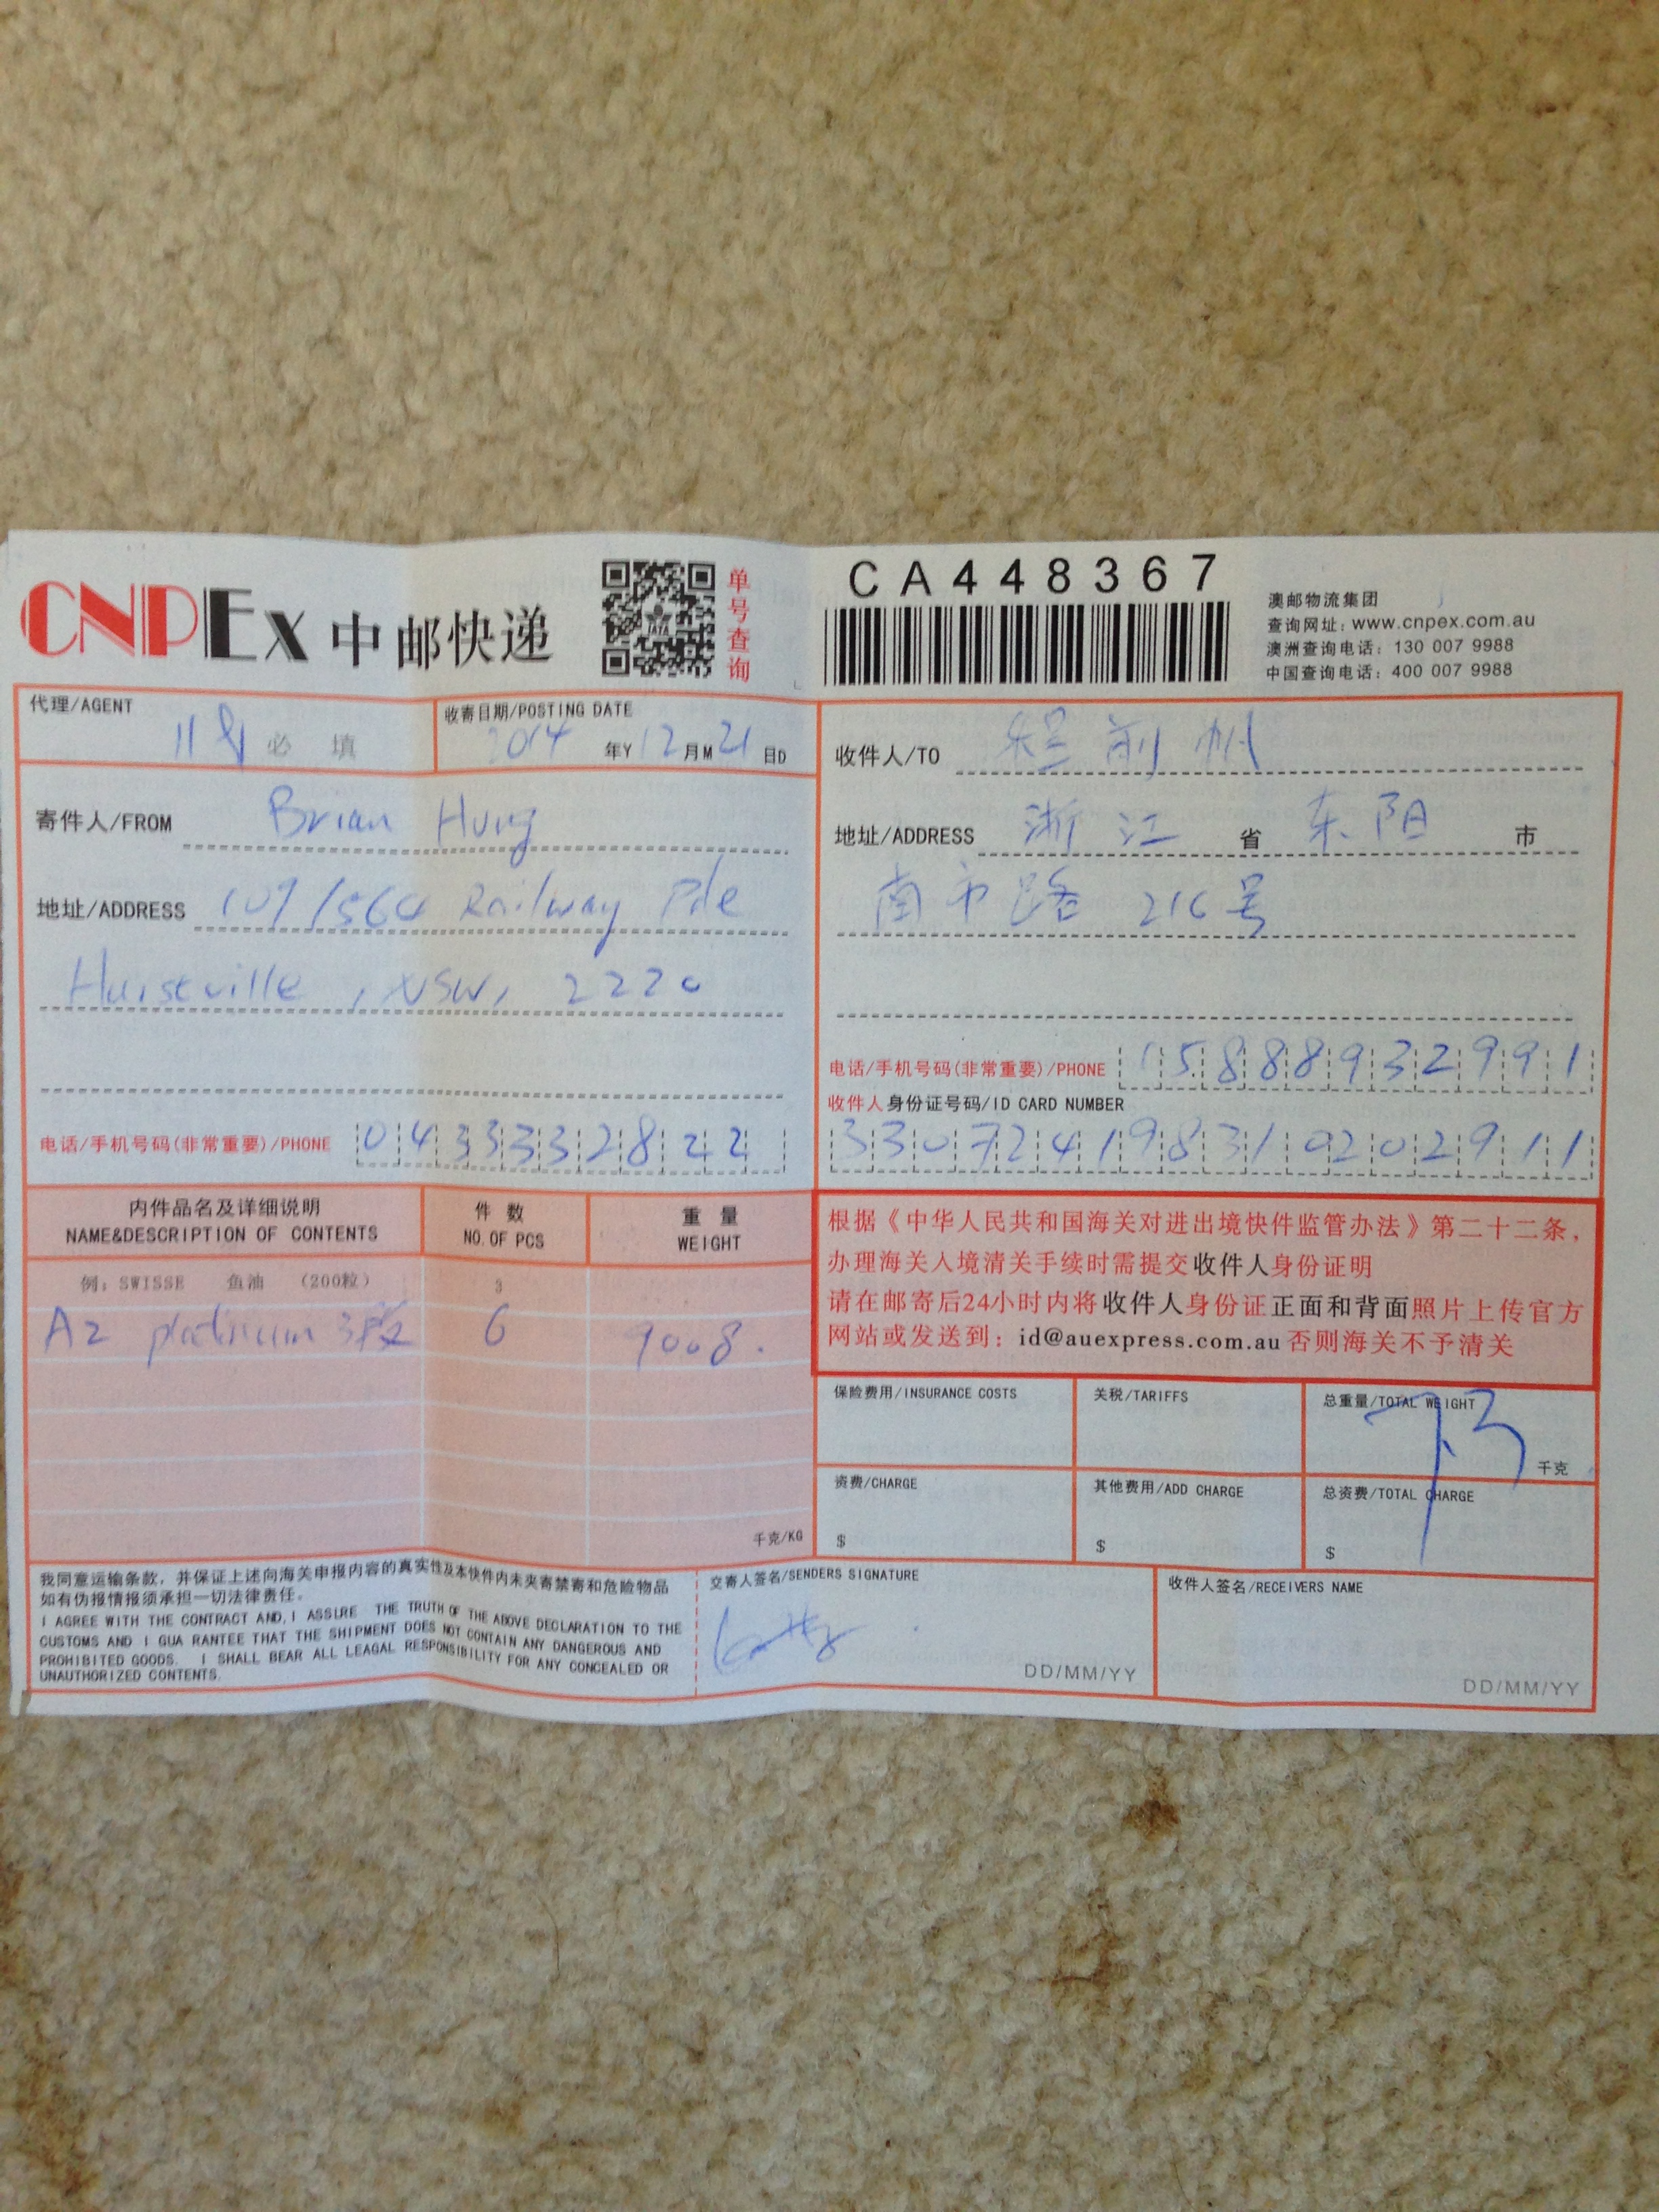 CNPEx 中邮快递
单号查询
CA448367
澳邮物流集团
查询网址：www.cnpex.com.au
澳洲查询电话：130 007 9988
中国查询电话：400 007 9988
代理/AGENT
必 填
收寄日期/POSTING DATE
2014 年Y 12 月M 21 日D
寄件人/FROM Brian Hung
地址/ADDRESS 109/564 Railway Pde
Hurstville, NSW, 2220
电话/手机号码(非常重要)/PHONE 0433332822
收件人/TO 程前帆
地址/ADDRESS 浙江 省 东阳 市
南市路 216号
电话/手机号码(非常重要)/PHONE 15888932991
收件人身份证号码/ID CARD NUMBER
330724198310202911
内件品名及详细说明
NAME&DESCRIPTION OF CONTENTS
件 数
NO.OF PCS
重 量
WEIGHT
例：SWISSE 鱼油 （200粒） 3
A2 platinum 3段 6 9008.
千克/KG
根据《中华人民共和国海关对进出境快件监管办法》第二十二条，
办理海关入境清关手续时需提交收件人身份证明
请在邮寄后24小时内将收件人身份证正面和背面照片上传官方
网站或发送到：id@auexpress.com.au 否则海关不予清关
保险费用/INSURANCE COSTS
关税/TARIFFS
总重量/TOTAL WEIGHT
7.3
千克
资费/CHARGE
$
其他费用/ADD CHARGE
$
总资费/TOTAL CHARGE
$
我同意运输条款，并保证上述向海关申报内容的真实性及本快件内未夹寄禁寄和危险物品
如有伪报情报须承担一切法律责任.
I AGREE WITH THE CONTRACT AND, I ASSURE THE TRUTH OF THE ABOVE DECLARATION TO THE
CUSTOMS AND I GUA RANTEE THAT THE SHIPMENT DOES NOT CONTAIN ANY DANGEROUS AND
PROHIBITED GOODS. I SHALL BEAR ALL LEAGAL RESPONSIBILITY FOR ANY CONCEALED OR
UNAUTHORIZED CONTENTS.
交寄人签名/SENDERS SIGNATURE
DD/MM/YY
收件人签名/RECEIVERS NAME
DD/MM/YY